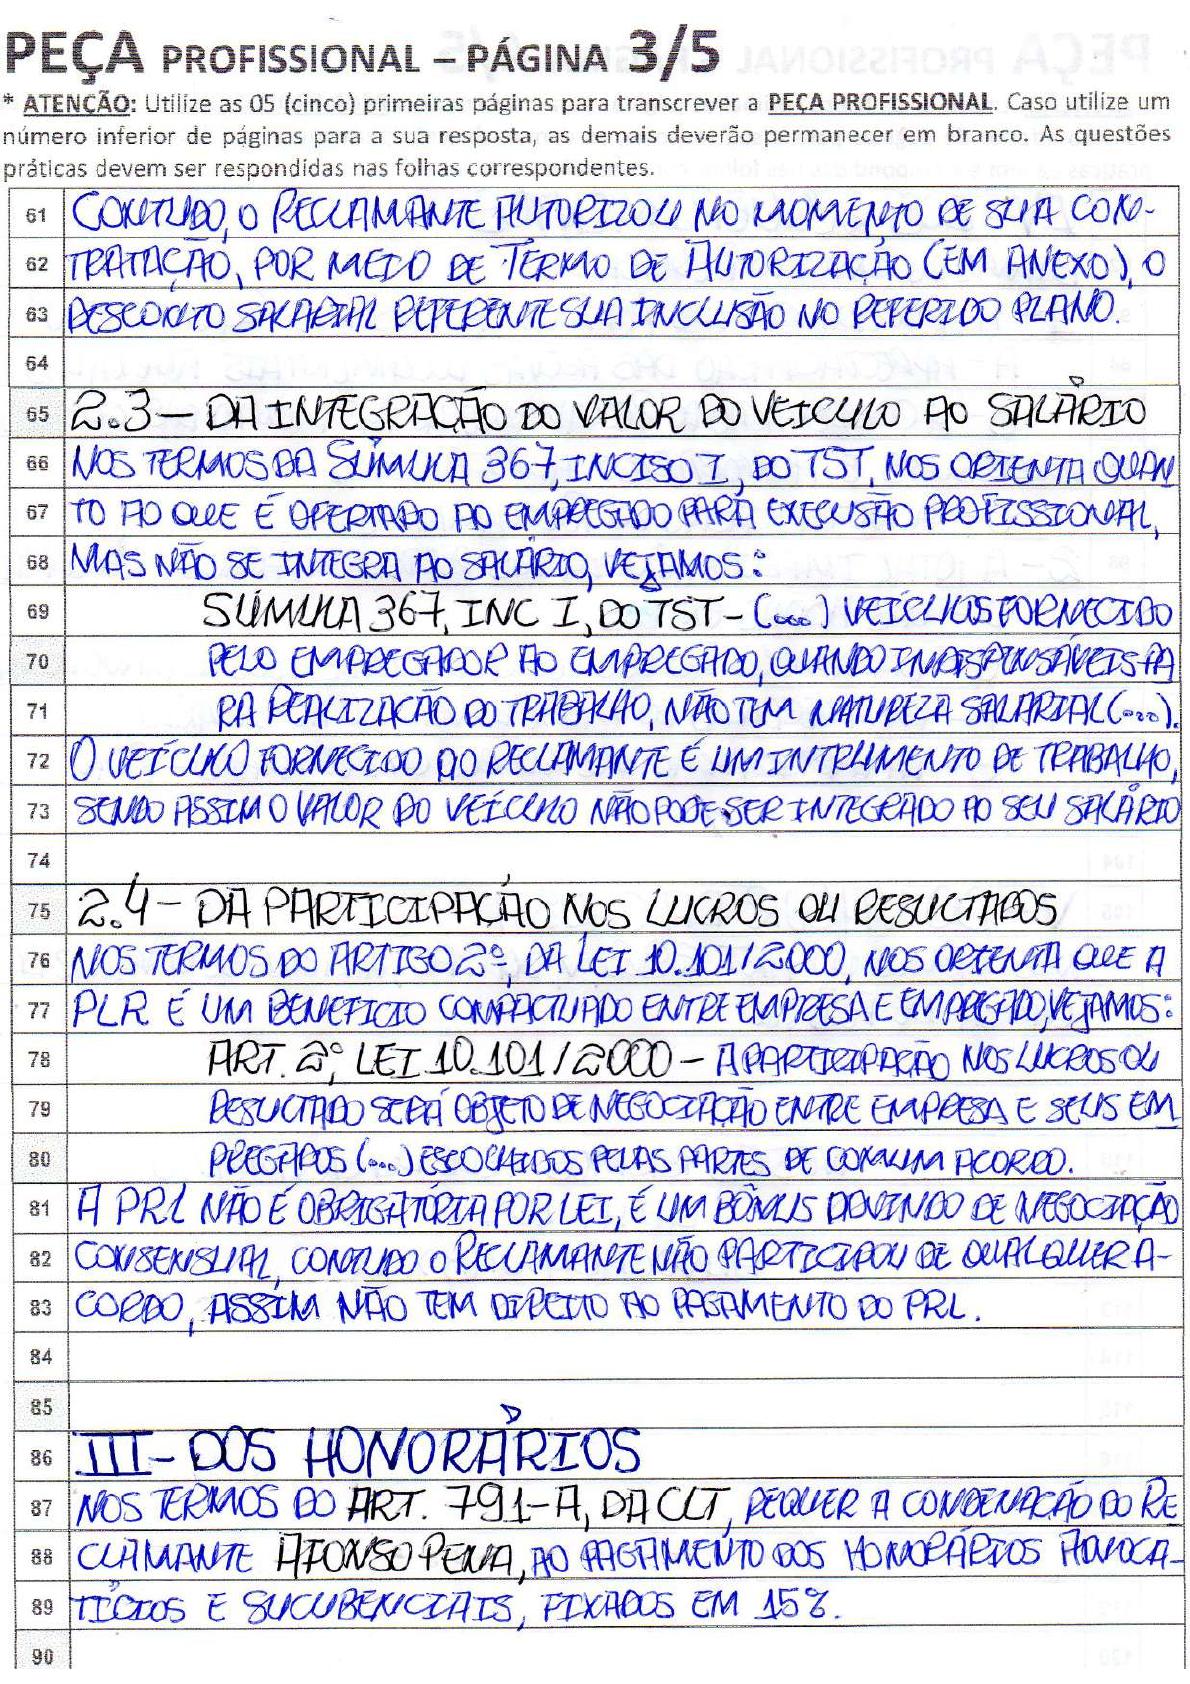 PEÇA PROFISSIONAL – PÁGINA 3/5
* ATENÇÃO: Utilize as 05 (cinco) primeiras páginas para transcrever a PEÇA PROFISSIONAL. Caso utilize um
número inferior de páginas para a sua resposta, as demais deverão permanecer em branco. As questões
práticas devem ser respondidas nas folhas correspondentes.
61 CONTUDO, O RECLAMANTE AUTORIZOU NO MOMENTO DE SUA CON-
62 TRATAÇÃO, POR MEIO DE TERMO DE AUTORIZAÇÃO (EM ANEXO), O
63 DESCONTO SALARIAL REFERENTE SUA INCLUSÃO NO REFERIDO PLANO.
64
65 2.3 – DA INTEGRAÇÃO DO VALOR DO VEICULO AO SALÁRIO
66 NOS TERMOS DA SÚMULA 367, INCISO I, DO TST, NOS ORIENTA QUAN
67 TO AO QUE É OFERTADO AO EMPREGADO PARA EXECUSÃO PROFISSIONAL,
68 MAS NÃO SE INTEGRA AO SALÁRIO, VEJAMOS:
69 SÚMULA 367, INC I, DO TST – (...) VEÍCULOS FORNECIDO
70 PELO EMPREGADOR AO EMPREGADO, QUANDO INDISPENSÁVEIS PA
71 RA REALIZAÇÃO DO TRABALHO, NÃO TEM NATUREZA SALARIAL (...).
72 O VEÍCULO FORNECIDO AO RECLAMANTE É UM INTRUMENTO DE TRABALHO,
73 SENDO ASSIM O VALOR DO VEÍCULO NÃO PODE SER INTEGRADO AO SEU SALÁRIO
74
75 2.4 – DA PARTICIPAÇÃO NOS LUCROS OU RESULTADOS
76 NOS TERMOS DO ARTIGO 2º, DA LEI 10.101/2000, NOS ORIENTA QUE A
77 PLR É UM BENEFICIO COMPACTUADO ENTRE EMPRESA E EMPREGADO, VEJAMOS:
78 ART. 2º, LEI 10.101/2000 – A PARTICIPAÇÃO NOS LUCROS OU
79 RESULTADO SERÁ OBJETO DE NEGOCIAÇÃO ENTRE EMPRESA E SEUS EM
80 PREGADOS (...) ESCOLHIDOS PELAS PARTES DE COMUM ACORDO.
81 A PRL NÃO É OBRIGATÓRIA POR LEI, É UM BÔNUS DEVINDO DE NEGOCIAÇÃO
82 CONSENSUAL, CONTUDO O RECLAMANTE NÃO PARTICIPOU DE QUALQUER A-
83 CORDO, ASSIM NÃO TEM DIREITO AO PAGAMENTO DO PRL.
84
85
86 III – DOS HONORÁRIOS
87 NOS TERMOS DO ART. 791-A, DA CLT, REQUER A CONDENAÇÃO DO RE
88 CLAMANTE AFONSO PENA, AO PAGAMENTO DOS HONORÁRIOS ADVOCA-
89 TÍCIOS E SUCUBENCIAIS, FIXADOS EM 15%.
90